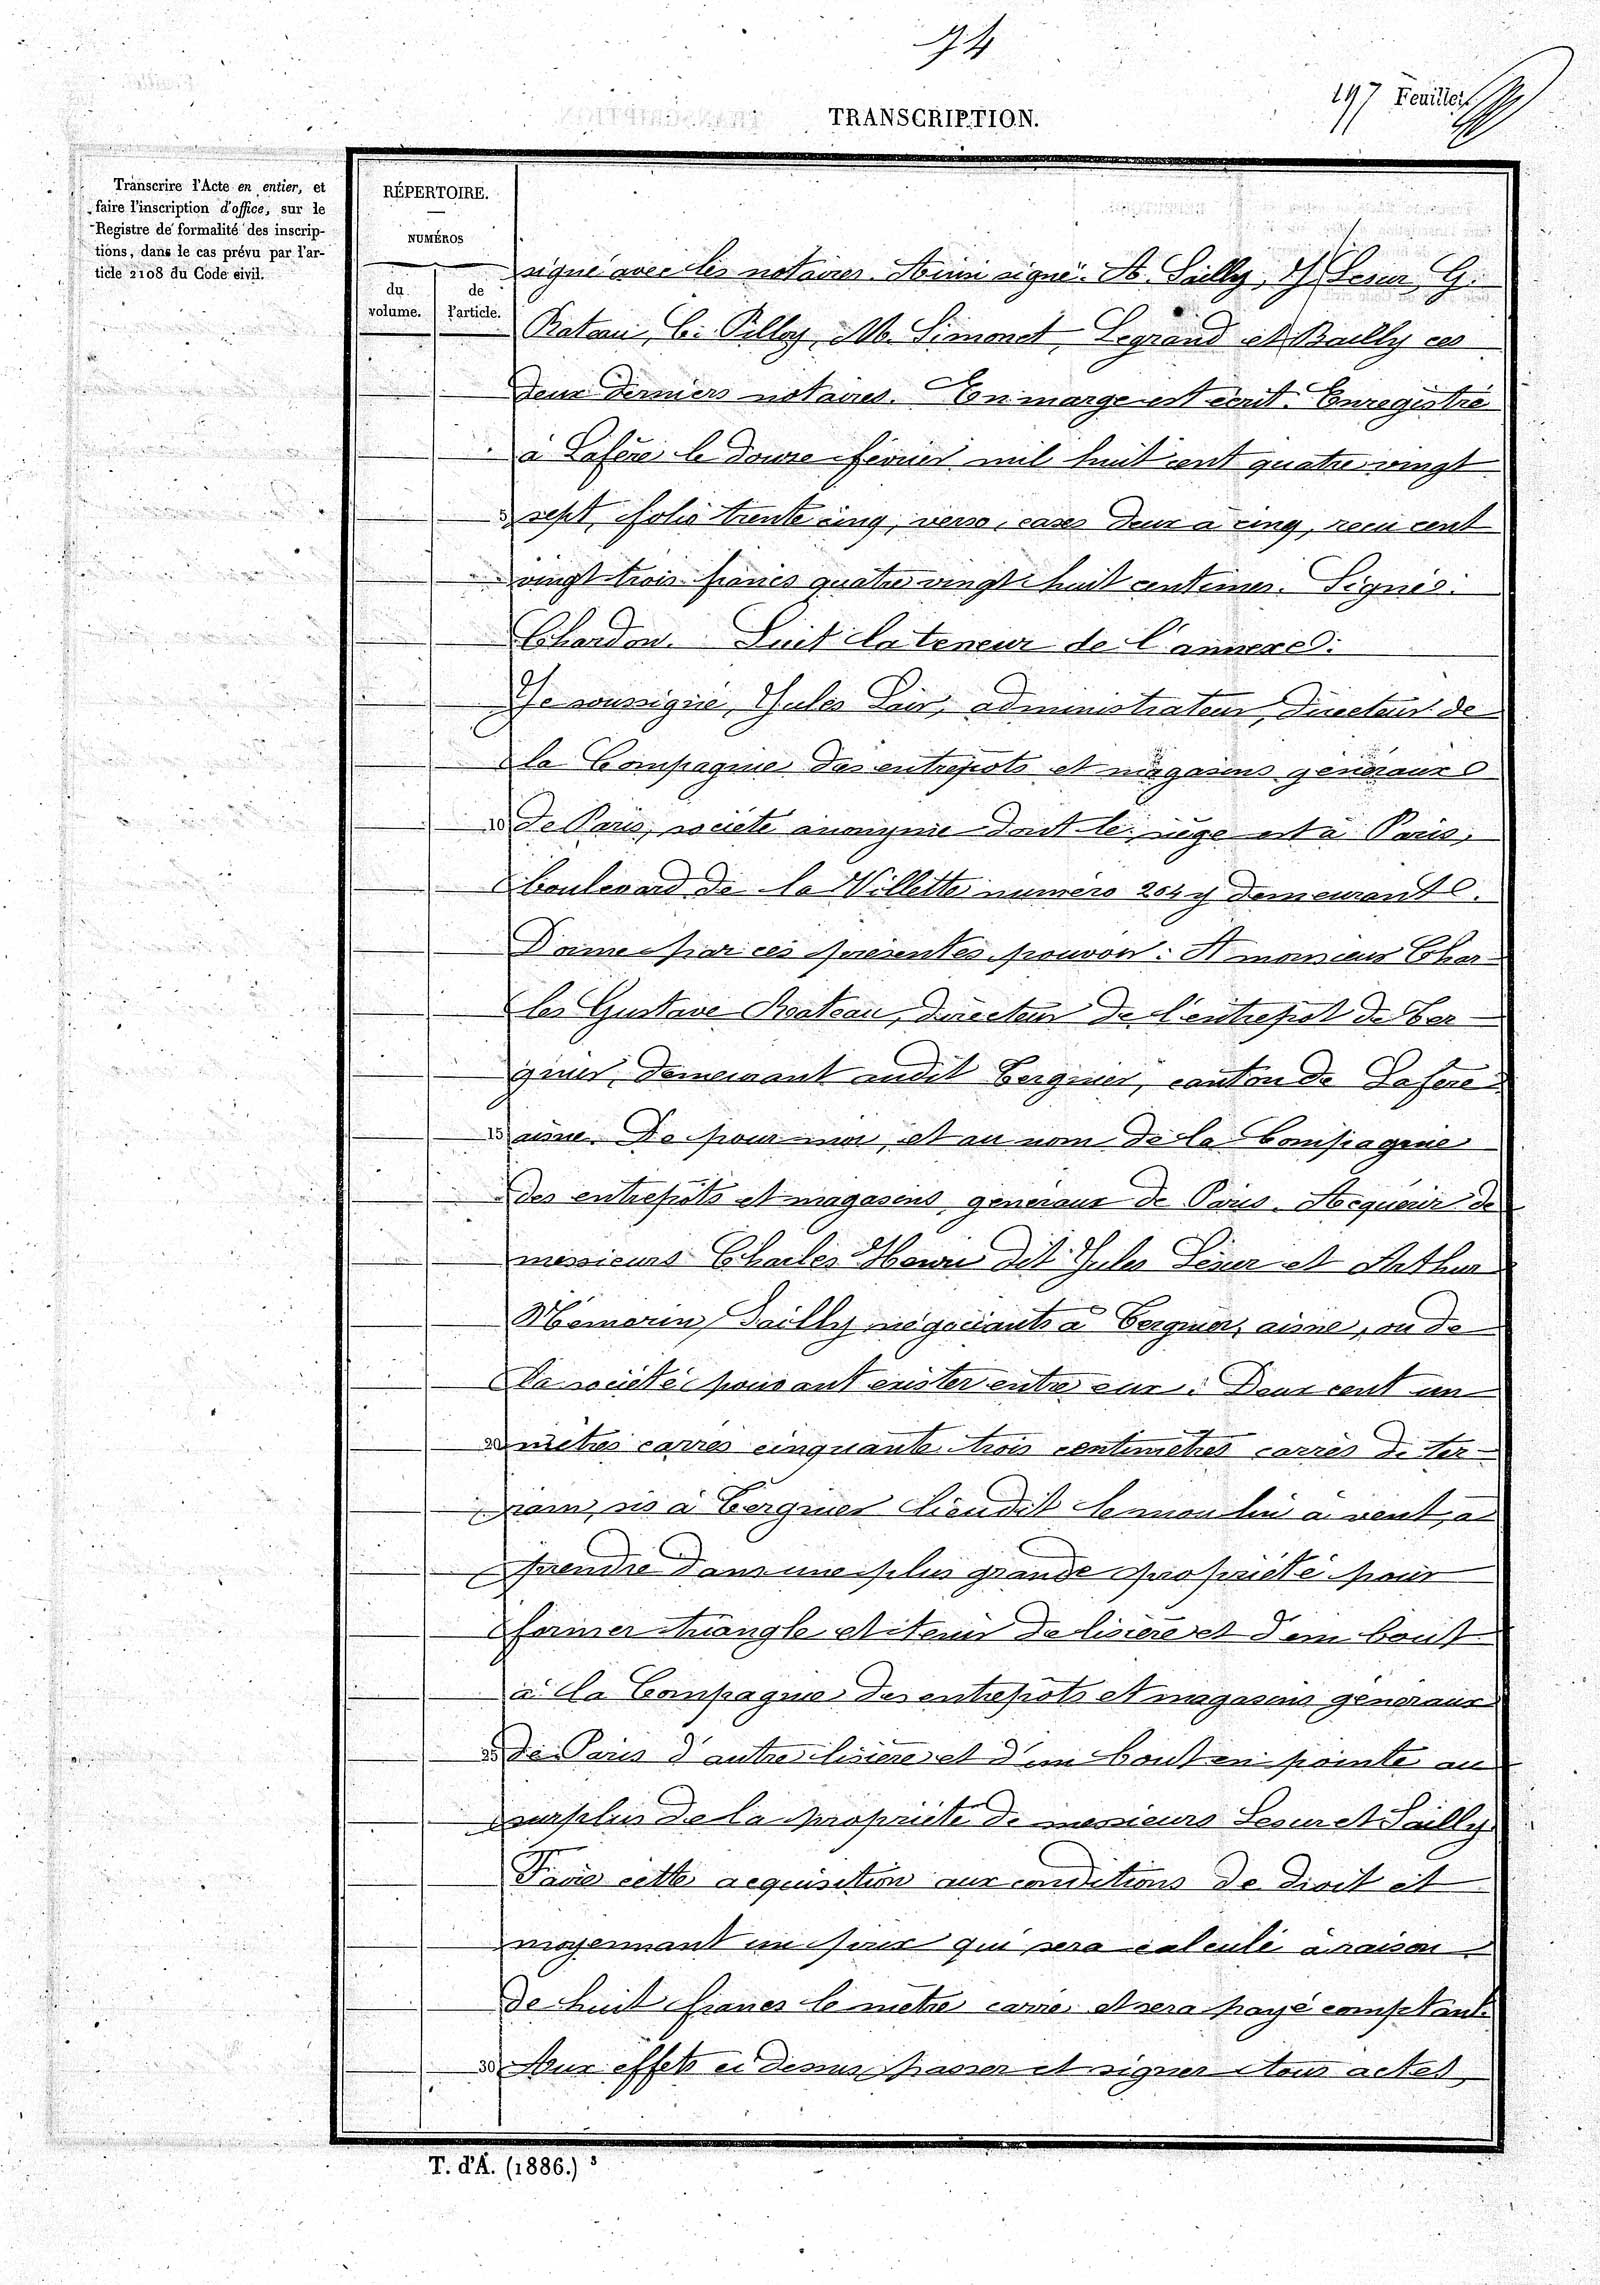 94
197 Feuillet
TRANSCRIPTION.
Transcrire l'Acte en entier, et
faire l'inscription d'office, sur le
Registre de formalité des inscrip-
tions, dans le cas prévu par l'ar-
ticle 2108 du Code civil.
RÉPERTOIRE.
NUMÉROS
du volume.
de l'article.
signé avec les notaires. Ainsi signé. A. Sailly, J. Lesur, G.
Rateau, C. Pilloy, M. Simonet, Legrand et Bailly ces
deux derniers notaires. En marge est écrit: Enregistré
à Lafère le douze février mil huit cent quatre vingt
5 sept, folio trente cinq, verso, cases deux à cinq, reçu cent
vingt trois francs quatre vingt huit centimes. Signé:
Chardon. Suit la teneur de l'annexe:
Je soussigné, Jules Lair, administrateur, directeur de
la Compagnie des entrepots et magasins généraux
10 de Paris, société anonyme dont le siège est à Paris,
boulevard de la Villette numéro 204 y demeurant.
Donne par ces présentes pouvoir: A monsieur Char-
les Gustave Rateau, directeur de l'entrepot de Ter-
gnier, demeurant audit Tergnier, canton de Lafère
15 aisne. De pour moi, et au nom de la Compagnie
des entrepôts et magasins généraux de Paris. Acquérir de
messieurs Charles Henri dit Jules Lesur et Arthur
Mémorin Sailly négociants à Tergnier, aisne, ou de
la société pouvant exister entre eux: Deux cent un
20 mètres carrés cinquante trois centimètres carrés de ter-
rain, sis à Tergnier lieudit le moulin à vent, à
prendre dans une plus grande propriété pour
former triangle et tenir de lisière et d'un bout
à la Compagnie des entrepôts et magasins généraux
25 de Paris d'autre lisière et d'un bout en pointe au
surplus de la propriété de messieurs Lesur et Sailly.
Faire cette acquisition aux conditions de droit et
moyennant un prix qui sera calculé à raison
de huit francs le mètre carré et sera payé comptant.
30 Aux effets ci dessus, passer et signer tous actes,
T. d'A. (1886.)